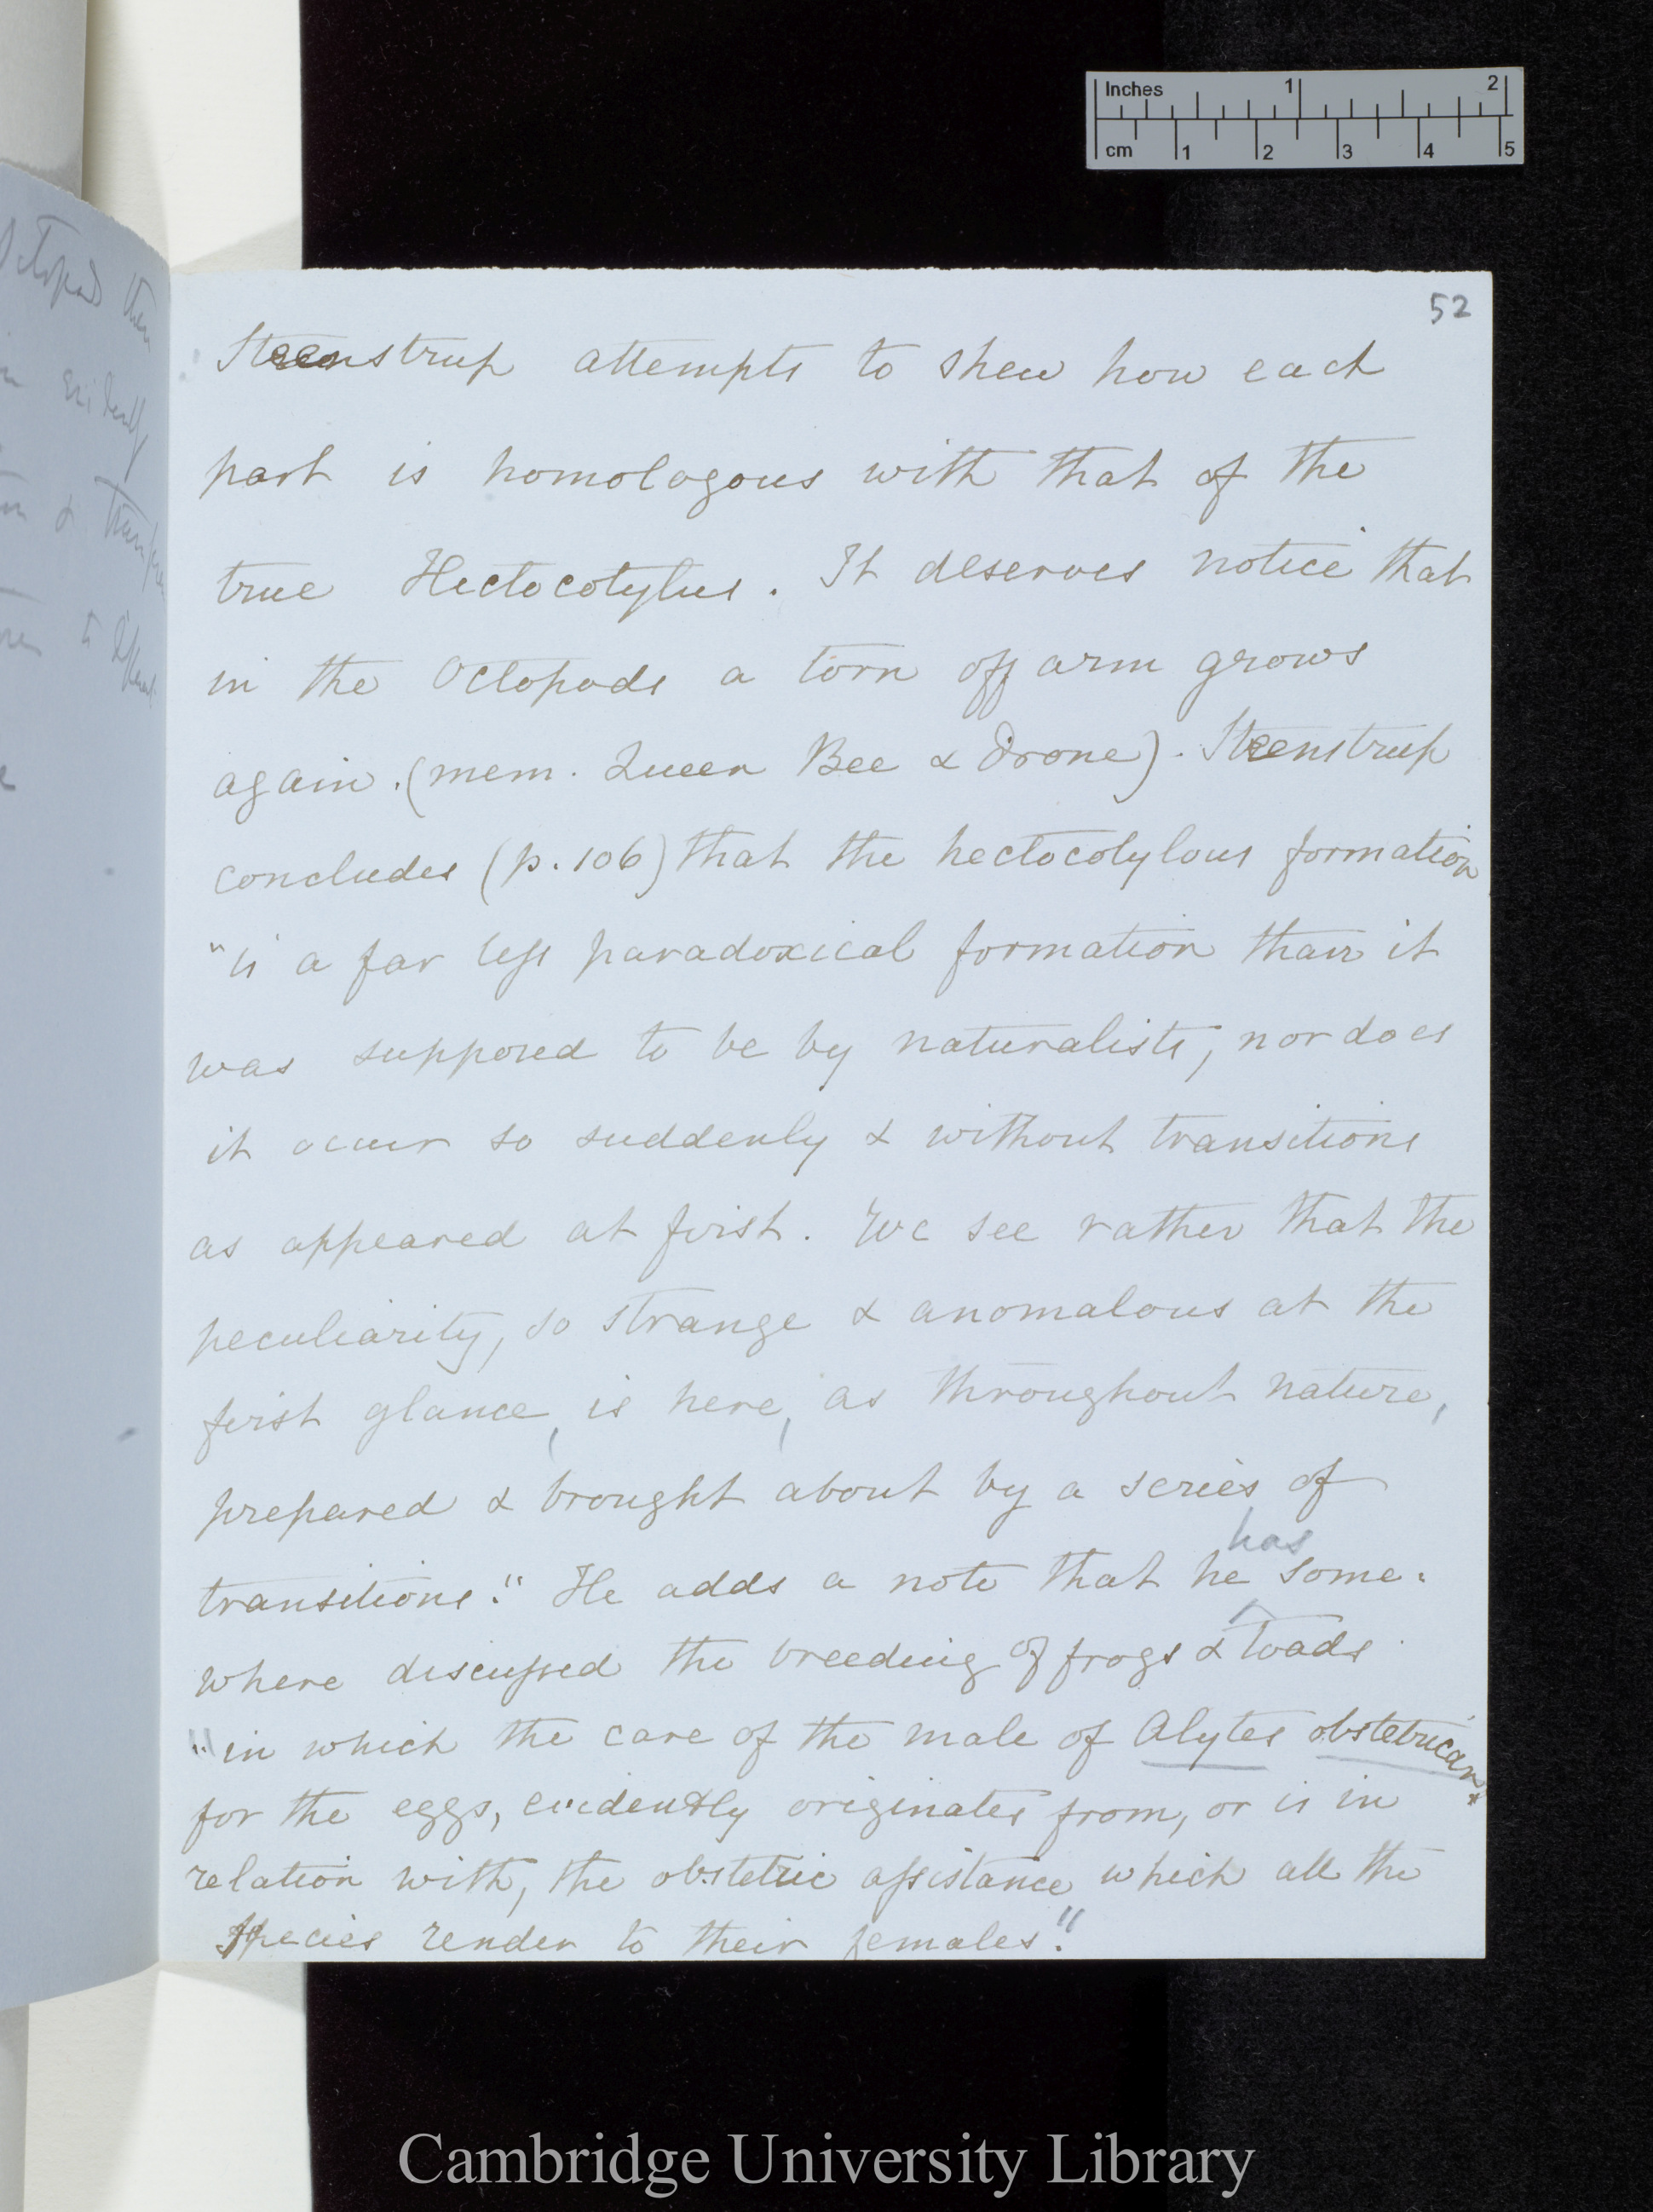 Inches 1 2
cm 1 2 3 4 5
52
Steenstrup attempts to shew how each
part is homologous with that of the
true Hectocotylus. It deserves notice that
in the Octopods a torn off arm grows
again. (mem. Queen Bee & Drone). Steenstrup
concludes (p. 106) that the hectocotylous formation
"is a far less paradoxical formation than it
was supposed to be by naturalists, nor does
it occur so suddenly & without transitions
as appeared at first. We see rather that the
peculiarity, so strange & anomalous at the
first glance, is here, as throughout nature,
prepared & brought about by a series of
transitions." He adds a note that he has some-
where discussed the breeding of frogs & toads
"in which the care of the male of Alytes obstetricans
for the eggs, evidently originates from, or is in
relation with, the obstetric assistance which all the
species render to their females."
Cambridge University Library